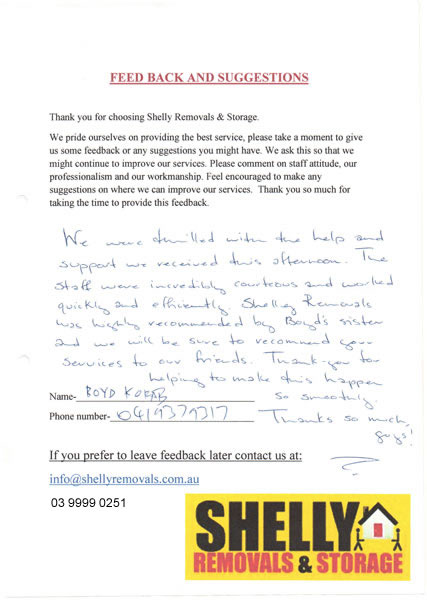 FEED BACK AND SUGGESTIONS
Thank you for choosing Shelly Removals & Storage.
We pride ourselves on providing the best service, please take a moment to give
us some feedback or any suggestions you might have. We ask this so that we
might continue to improve our services. Please comment on staff attitude, our
professionalism and our workmanship. Feel encouraged to make any
suggestions on where we can improve our services. Thank you so much for
taking the time to provide this feedback.
We were thrilled with the help and
support we received this afternoon. The
staff were incredibly courteous and worked
quickly and efficiently. Shelley Removals
was highly recommended by Boyd's sister
and we will be sure to recommend your
services to our friends. Thank-you for
helping to make this happen
so smoothly.
Name- BOYD
Phone number- 0419379317
Thanks so much,
guys!
If you prefer to leave feedback later contact us at:
info@shellyremovals.com.au
03 9999 0251
SHELLY
REMOVALS & STORAGE